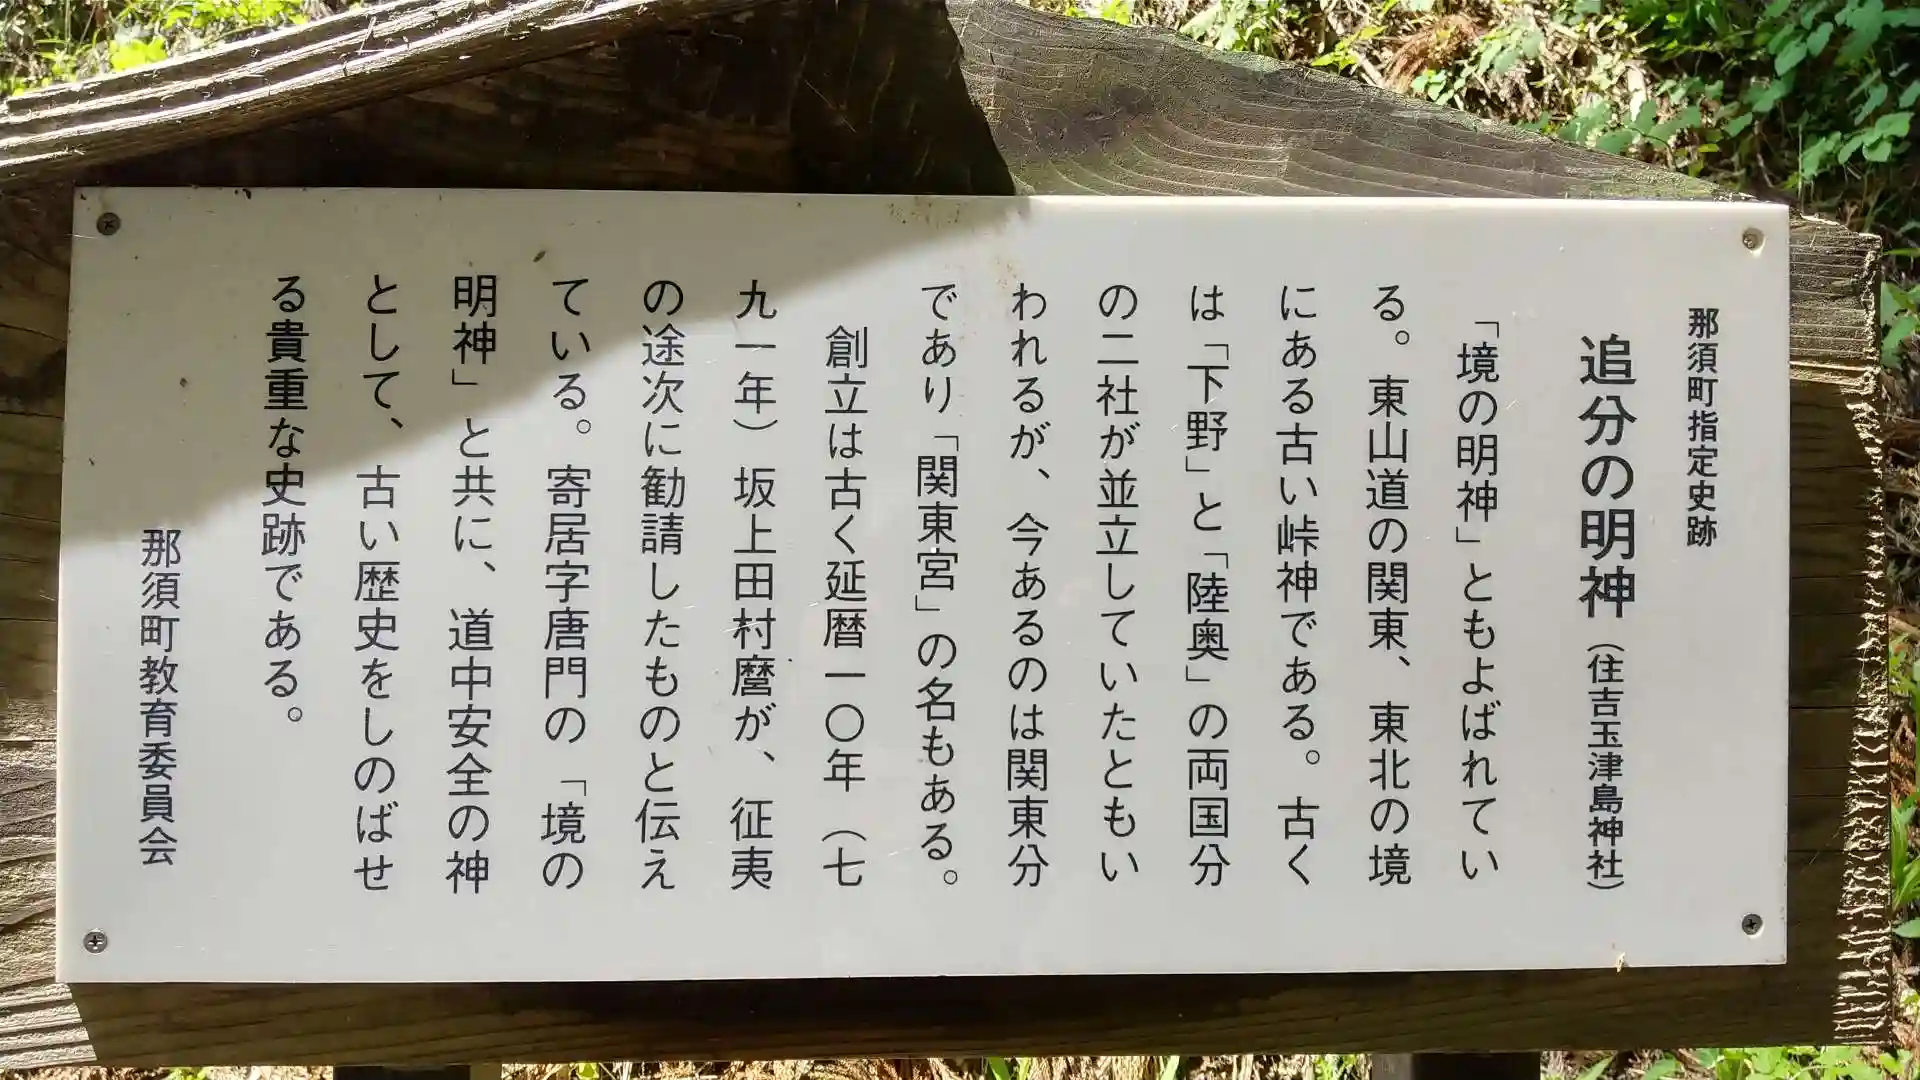 那須町指定史跡
追分の明神（住吉玉津島神社）
「境の明神」ともよばれてい
る。東山道の関東、東北の境
にある古い峠神である。古く
は「下野」と「陸奥」の両国分
の二社が並立していたともい
われるが、今あるのは関東分
であり「関東宮」の名もある。
創立は古く延暦一〇年（七
九一年）坂上田村麿が、征夷
の途次に勧請したものと伝え
ている。寄居字唐門の「境の
明神」と共に、道中安全の神
として、古い歴史をしのばせ
る貴重な史跡である。
那須町教育委員会